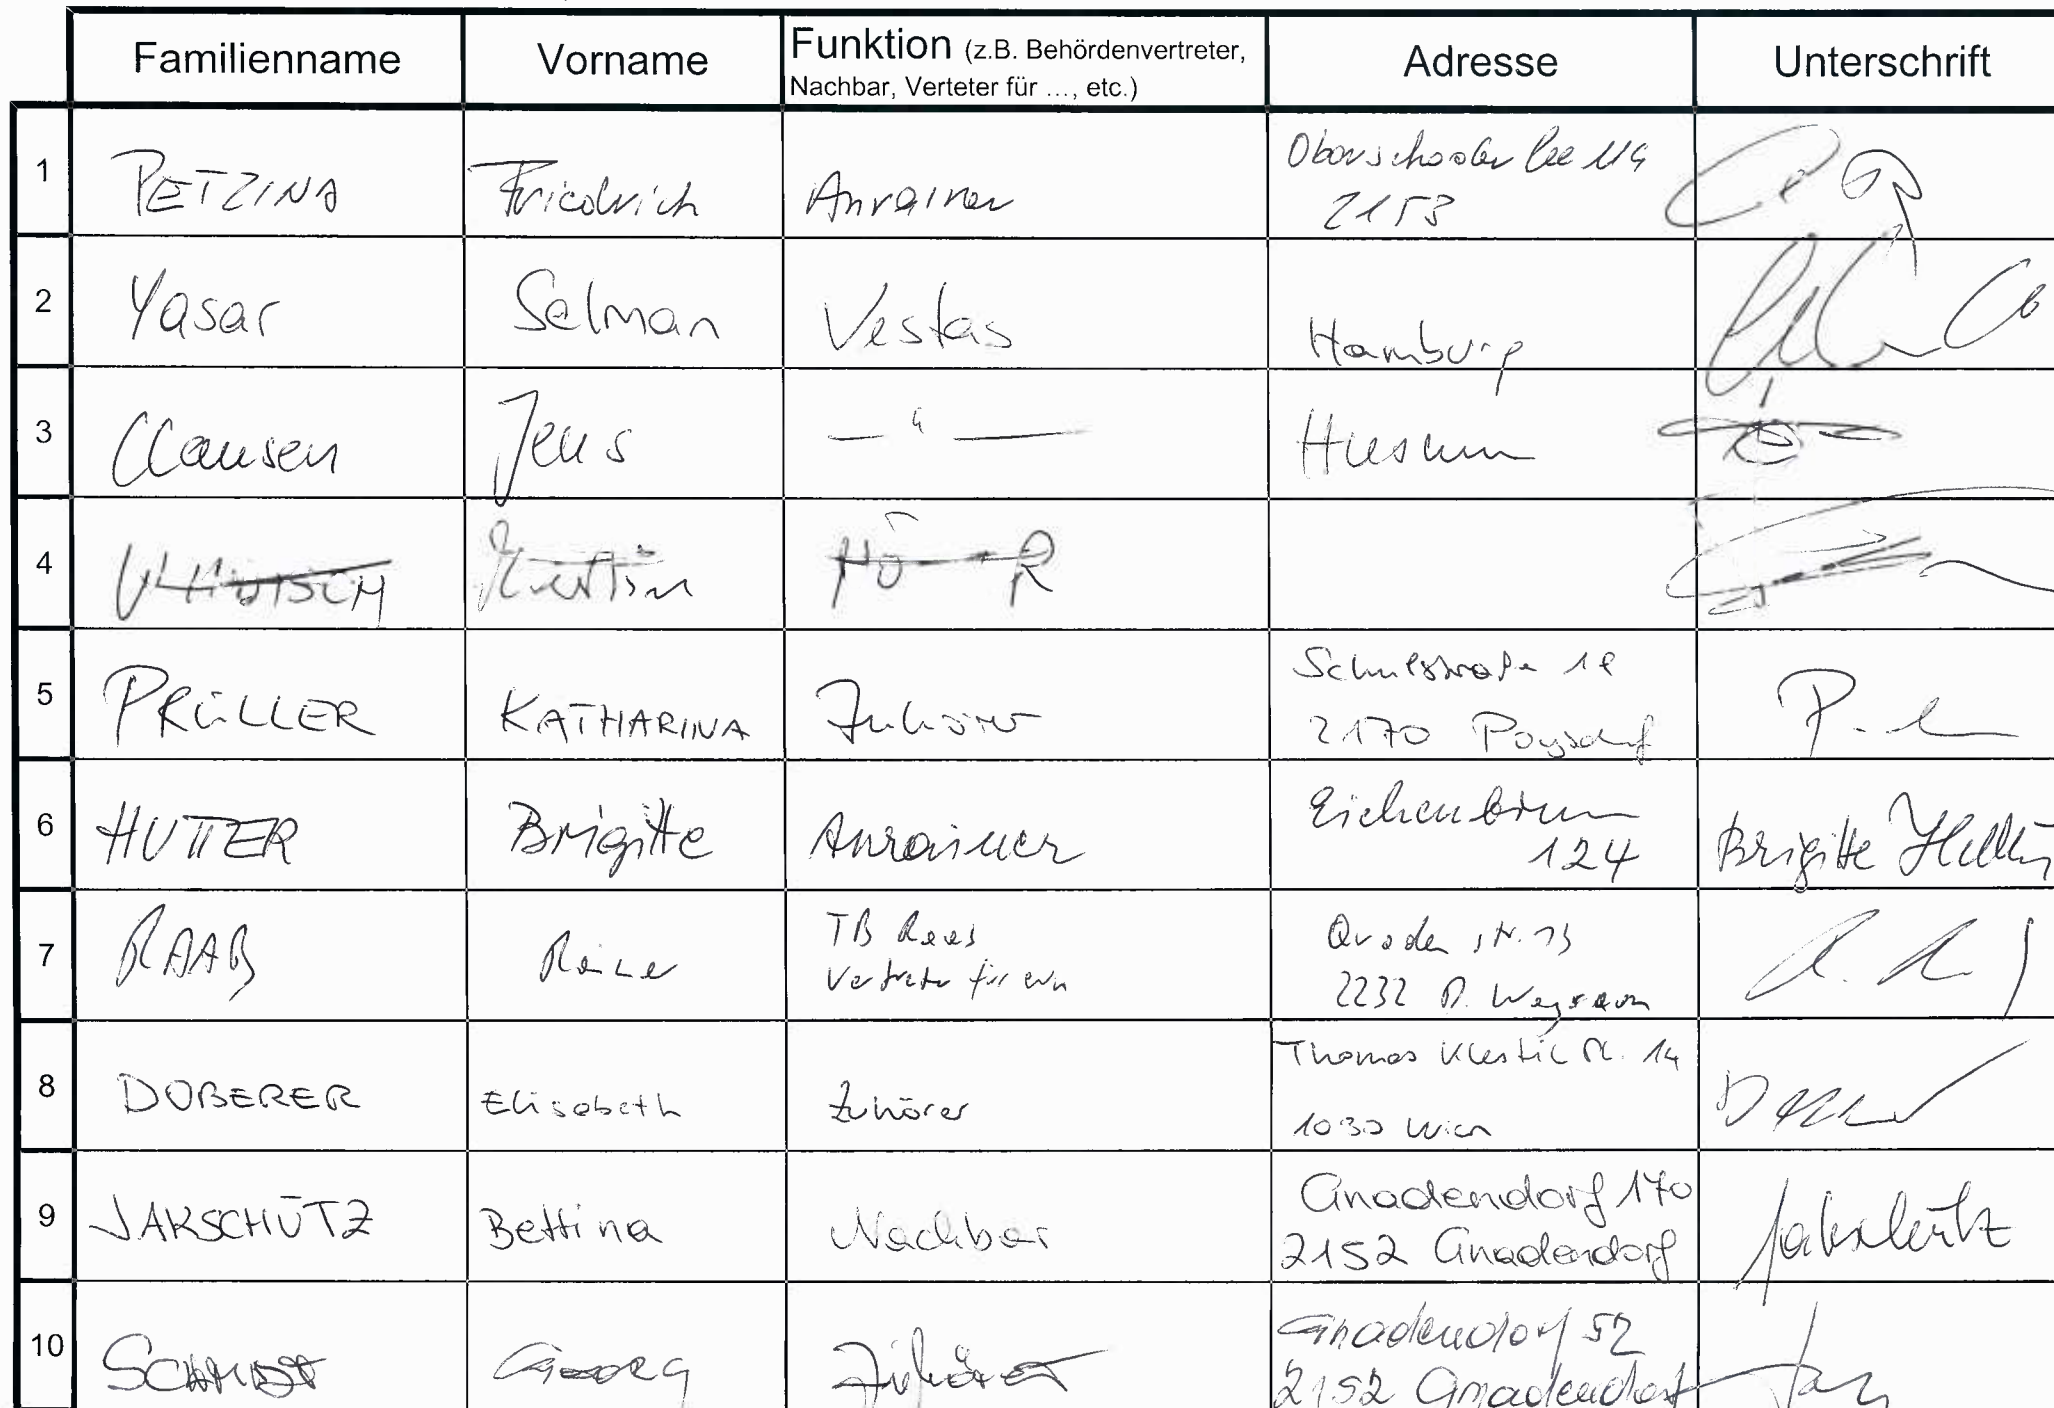 Familienname Vorname Funktion (z.B. Behördenvertreter, Nachbar, Verteter für ..., etc.) Adresse Unterschrift
1 PETZINA Friedrich Anrainer 114
2153
2 Yasar Selman Vestas Hamburg
3 Clausen Jens — " — Husum
4
5 PRÜLLER KATHARINA Zuhörer Schulstraße 18
2170 Poysdorf
6 HUTTER Brigitte Anrainer Eichenbrunn Brigitte Hutter
124
7 RAAB Rainer TB Raab
Vertreter für
2232 D. Wagram
8 DOBERER Elisabeth Zuhörer Thomas Klestil Pl. 14
1030 Wien
9 JAKSCHÜTZ Bettina Nachbar Gnadendorf 170 Jakschütz
2152 Gnadendorf
10 SCHMIDT Georg Zuhörer Gnadendorf 52
2152 Gnadendorf